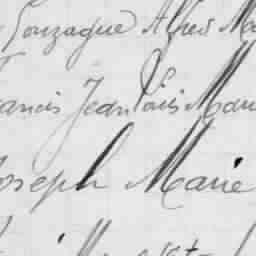 Gonzague Alfred Ma
ancis Jean Louis Mau
Joseph Marie